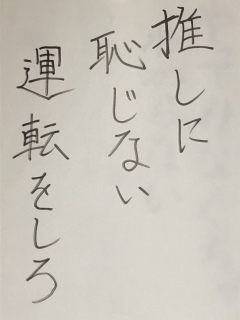 推しに
恥じない
運転をしろ